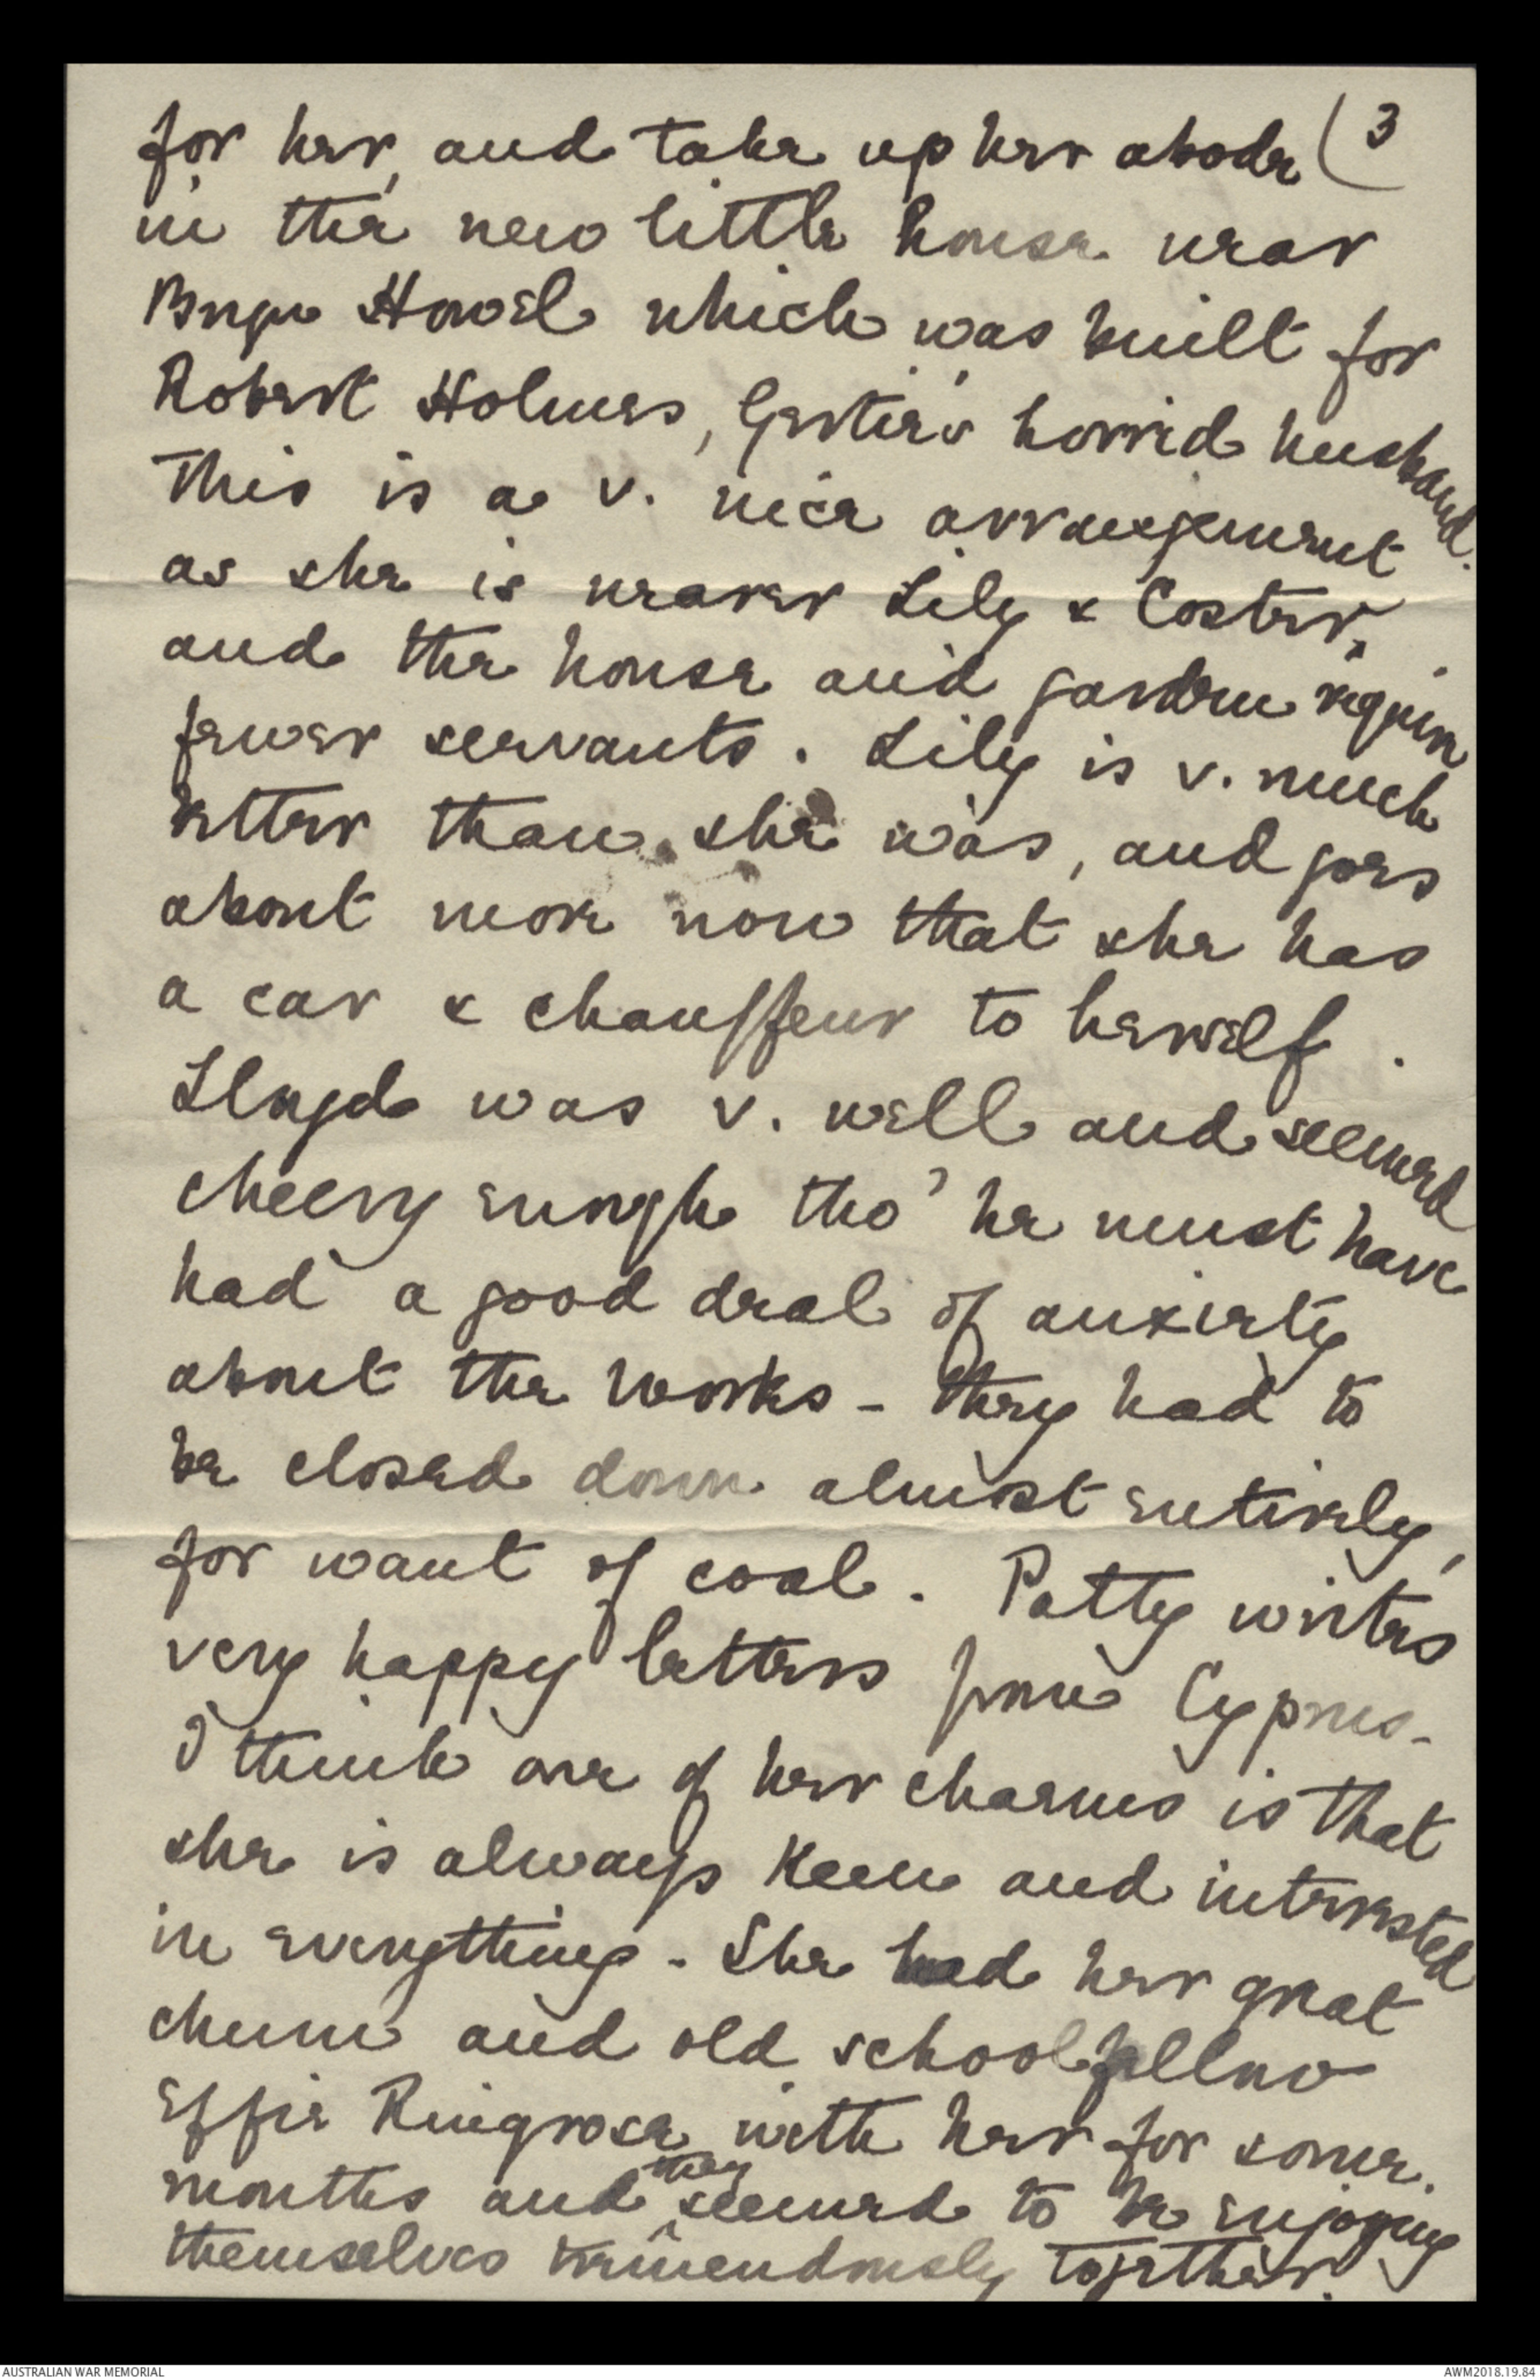 for her, and take up her abode (3
in the new little house near
Howel which was built for
Robert Holmes, Gertie's horrid husband.
This is a v. nice arrangement
as she is nearer Lily & Coster,
and the house and garden require
fewer servants. Lily is v. much
better than she was, and goes
about more now that she has
a car & chauffeur to herself.
Lloyd was v. well and seemed
cheery enough tho' he must have
had a good deal of anxiety
about the works - they had to
be closed down almost entirely,
for want of coal. Patty writes
very happy letters from Cyprus -
I think one of her charms is that
she is always keen and interested
in everything - She had her great
chum and old schoolfellow
Effie Ringrose with her for some
months and they seemed to be enjoying
themselves tremendously together.
AUSTRALIAN WAR MEMORIAL
AWM2018.19.84